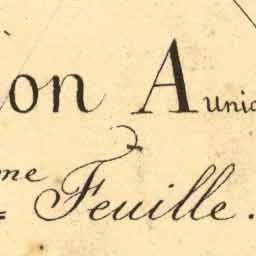 ion A unio
me Feuille.